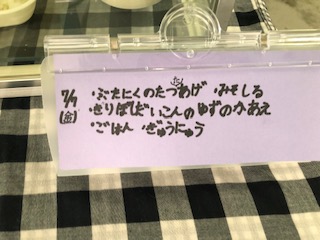 7/7 ・ぶたにくのたつたあげ ・みそしる
(金) ・きりぼしだいこんのゆずのかあえ
・ごはん ・ぎゅうにゅう